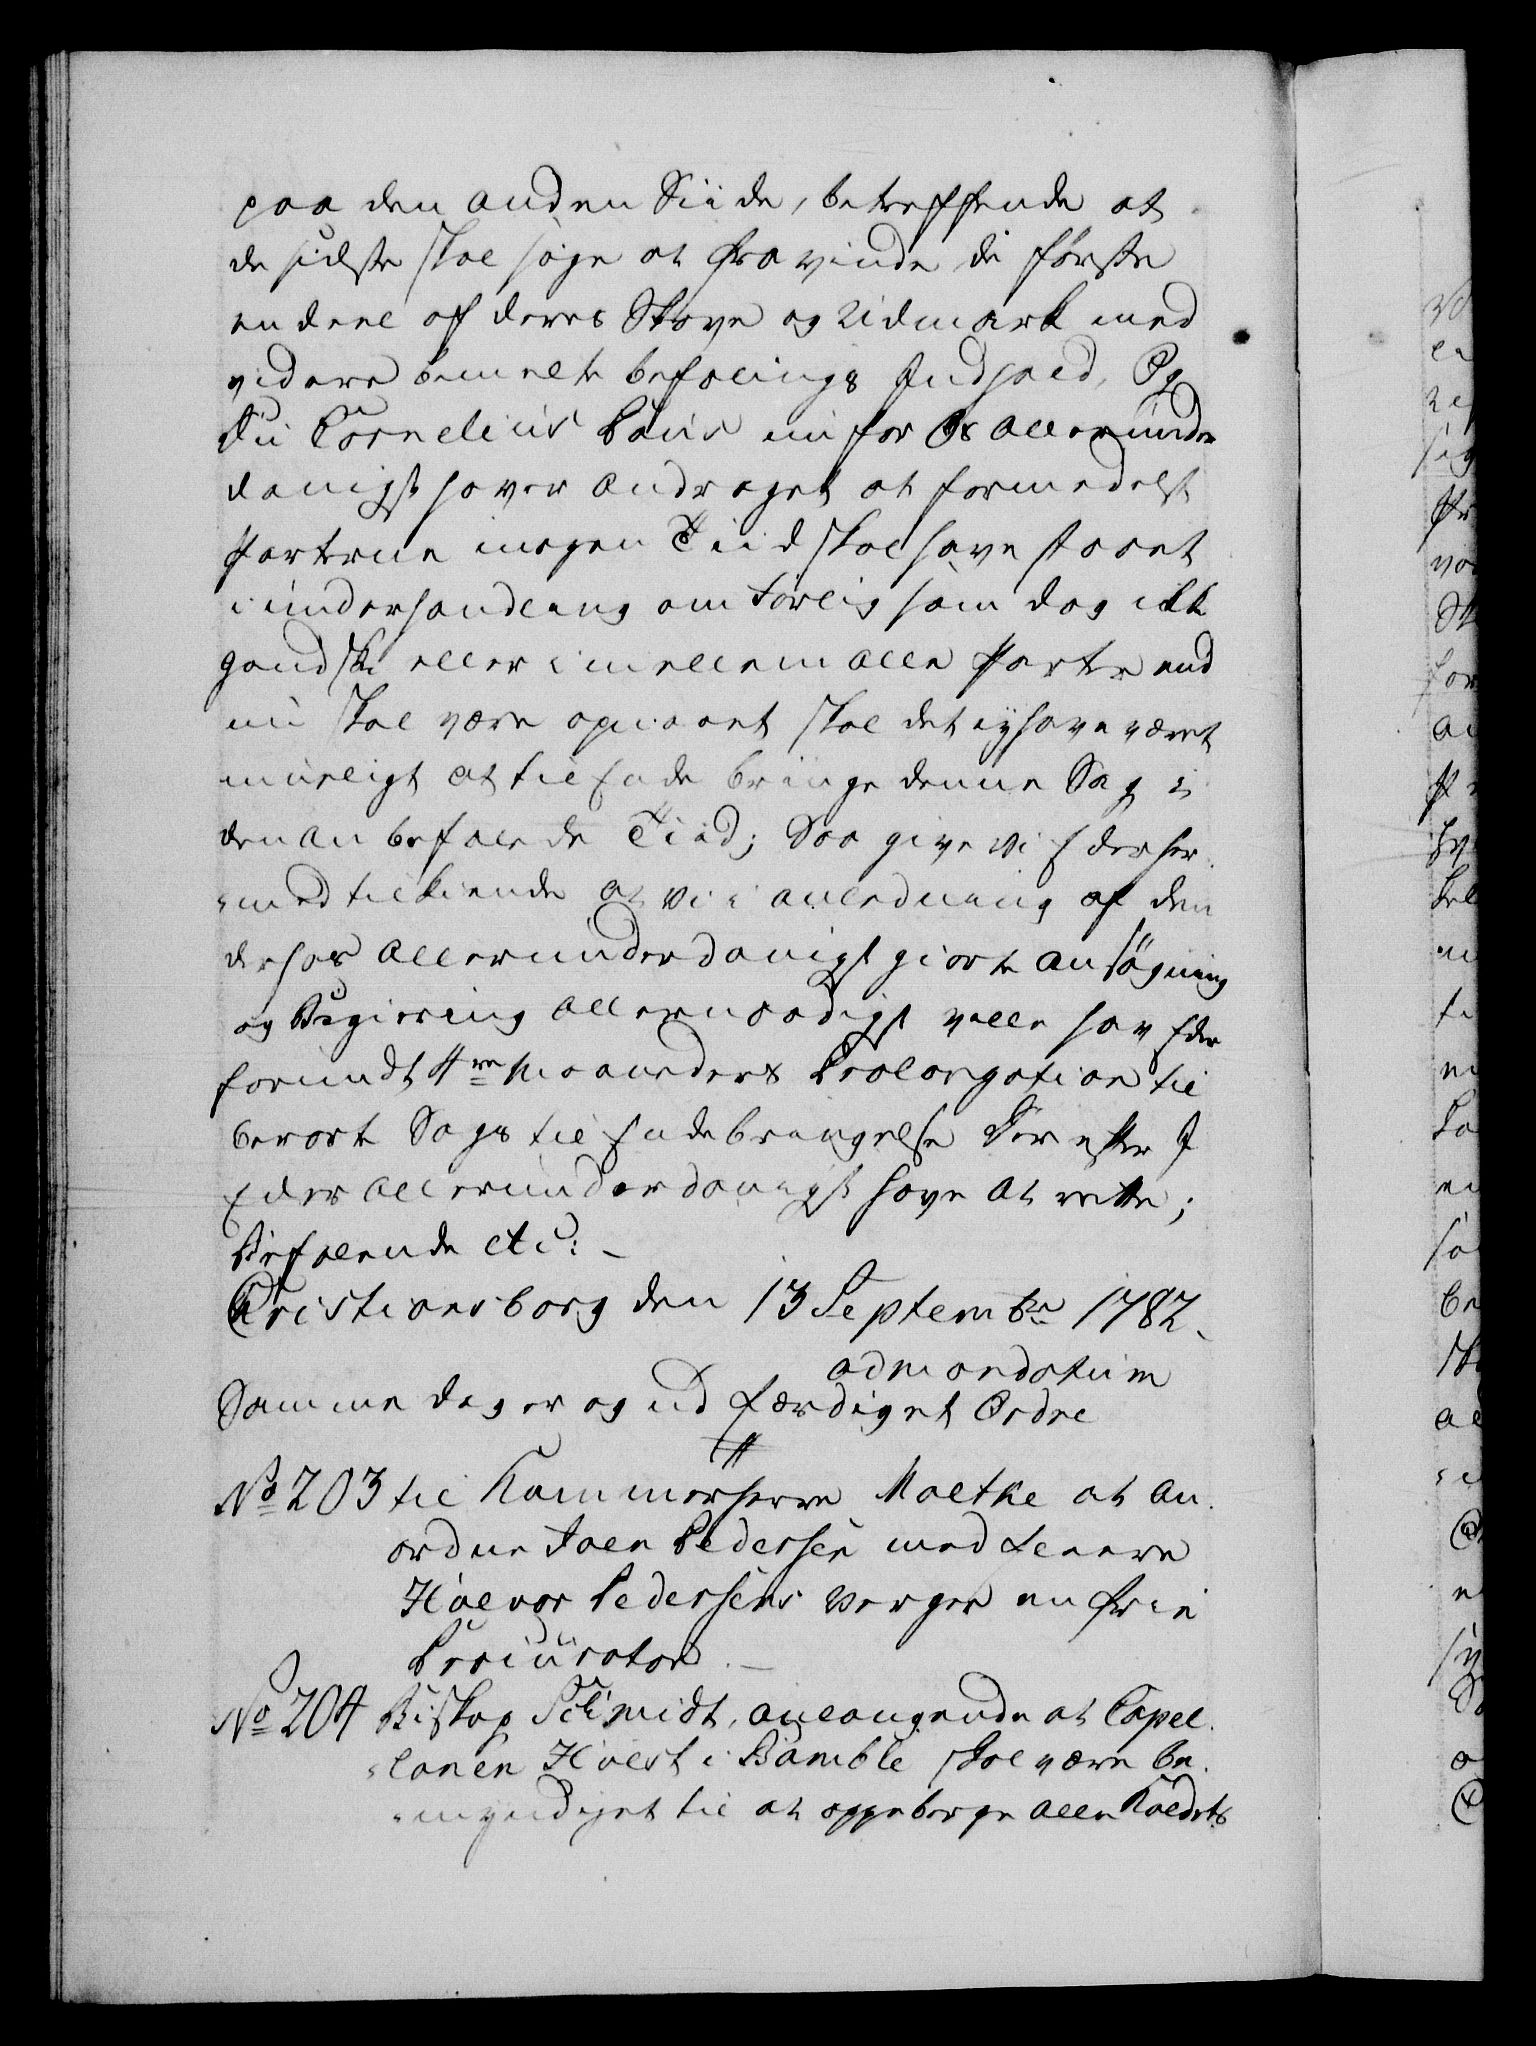 paa den anden Siide, betreffende at
de sidste skal søge at fra vinde de første
en deel af deres Skove og Udmark med
videre bemelte befalings Indhold, Og
Du Cornelius Paus nu for Os allerunder
danigst haver andraget at formedelst
Parterne nogen Tiid skal have staaet
i underhandling om Forlig som dog ikke
gandske eller imellem alle Parter end
nu skal være opnaaet skal det ey have været
mueligt at til Ende bringe denne Sag i
den anbefalede Tiid; Saa give vi Eder her
med tilkiende at vi i anledning af den
derhos allerunderdanigst giorte ansøgning
og Begiering allernaadigst ville hav Eder
forundt 4re Maaneders Prolongation til
berørte Sags til Endebringelse Derefter I
Eder allerunderdanigst have at rette;
Befalende etc: –
Christiansborg den 13 Septembr 1782.
ad mandatum
Samme dag er og udfærdiget Ordre
No 203 til Kammerherre Moltke at an
ordne Joen Pedersen med flere
Halvor Pedersens Verger en frie
Procurator –
No 204 Biskop Schmidt, anlangende at Capel
lanen Holst i Bamble skal være be
myndiget til at oppeberge alle Kaldets